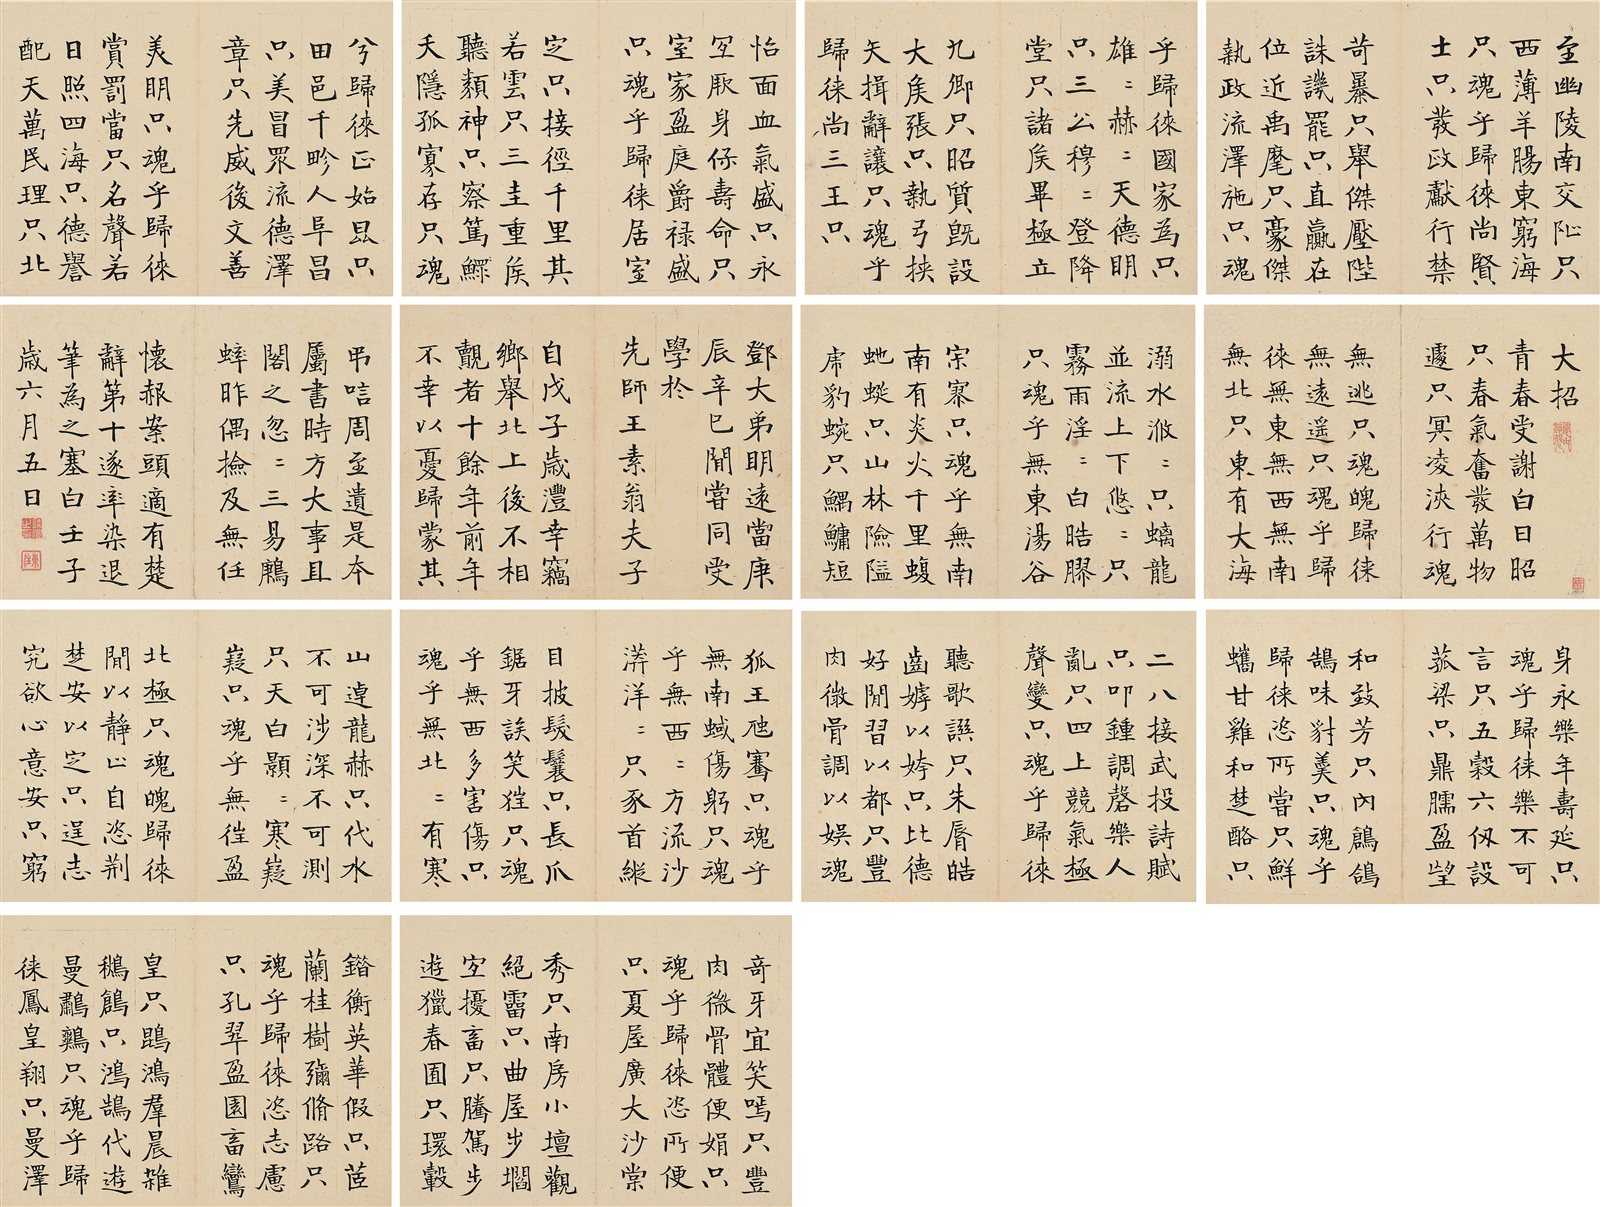 至幽陵南交阯只
西薄羊腸東窮海
只魂乎歸徠尚賢
士只發政獻行禁
苛暴只舉傑壓陛
誅譏罷只直贏在
位近禹麾只豪傑
執政流澤施只魂
乎歸徠國家為只
雄〻赫〻天德明
只三公穆〻登降
堂只諸侯畢極立
九卿只昭質既設
大侯張只執弓挾
矢揖辭讓只魂乎
歸徠尚三王只
怡面血氣盛只永
宜厥身保壽命只
室家盈庭爵祿盛
只魂乎歸徠居室
定只接徑千里其
若雲只三圭重侯
聽類神只察篤鰥
夭隱孤寡存只魂
兮歸徠正始昆只
田邑千畛人阜昌
只美冒眾流德澤
章只先威後文善
美明只魂乎歸徠
賞罰當只名聲若
日照四海只德譽
配天萬民理只北
大招
青春受謝白日昭
只春氣奮發萬物
遽只冥凌浹行魂
無逃只魂魄歸徠
無遠遥只魂乎歸
徠無東無西無南
無北只東有大海
溺水浟〻只螭龍
並流上下悠〻只
霧雨淫〻白皓膠
只魂乎無東湯谷
宗寥只魂乎無南
南有炎火千里蝮
虵蜒只山林險隘
虎豹蜿只鰅鱅短
鄧大弟明遠當庚
辰辛巳間嘗同受
學於
先師王素翁夫子
自戊子歲澧幸竊
鄉舉北上後不相
覿者十餘年前年
不幸以憂歸蒙其
弔唁周至遺是本
屬書時方大事且
閣之忽〻三易
蟀昨偶撿及無任
懷赧案頭適有楚
辭第十遂率染退
筆為之塞白壬子
歲六月五日
身永樂年壽延只
魂乎歸徠樂不可
言只五穀六仞設
菰梁只鼎臑盈望
和致芳只內鶬鴿
鵠味豺羹只魂乎
歸徠恣所嘗只鮮
蠵甘雞和楚酪只
二八接武投詩賦
只叩鍾調磬樂人
亂只四上競氣極
聲變只魂乎歸徠
聽歌譔只朱脣皓
齒嫭以姱只比德
好閒習以都只豐
肉微骨調以娛魂
狐王虺騫只魂乎
無南蜮傷躬只魂
乎無西〻方流沙
漭洋〻只豕首縱
目披髮鬤只長爪
鋸牙誒笑狂只魂
乎無西多害傷只
魂乎無北〻有寒
山逴龍赫只代水
不可涉深不可測
只天白顥〻寒嶷
嶷只魂乎無往盈
北極只魂魄歸徠
閒以靜只自恣荊
楚安以定只逞志
究欲心意安只窮
奇牙宜笑嘕只豐
肉微骨體便娟只
魂乎歸徠恣所便
只夏屋廣大沙棠
秀只南房小壇觀
絕霤只曲屋步壛
宜擾畜只騰駕步
遊獵春囿只環轂
錯衡英華假只茝
蘭桂樹彌脩路只
魂乎歸徠恣志慮
只孔翠盈園畜鸞
皇只鵾鴻羣晨雜
鶖鶬只鴻鵠代遊
曼鷫鷞只魂乎歸
徠鳳皇翔只曼澤